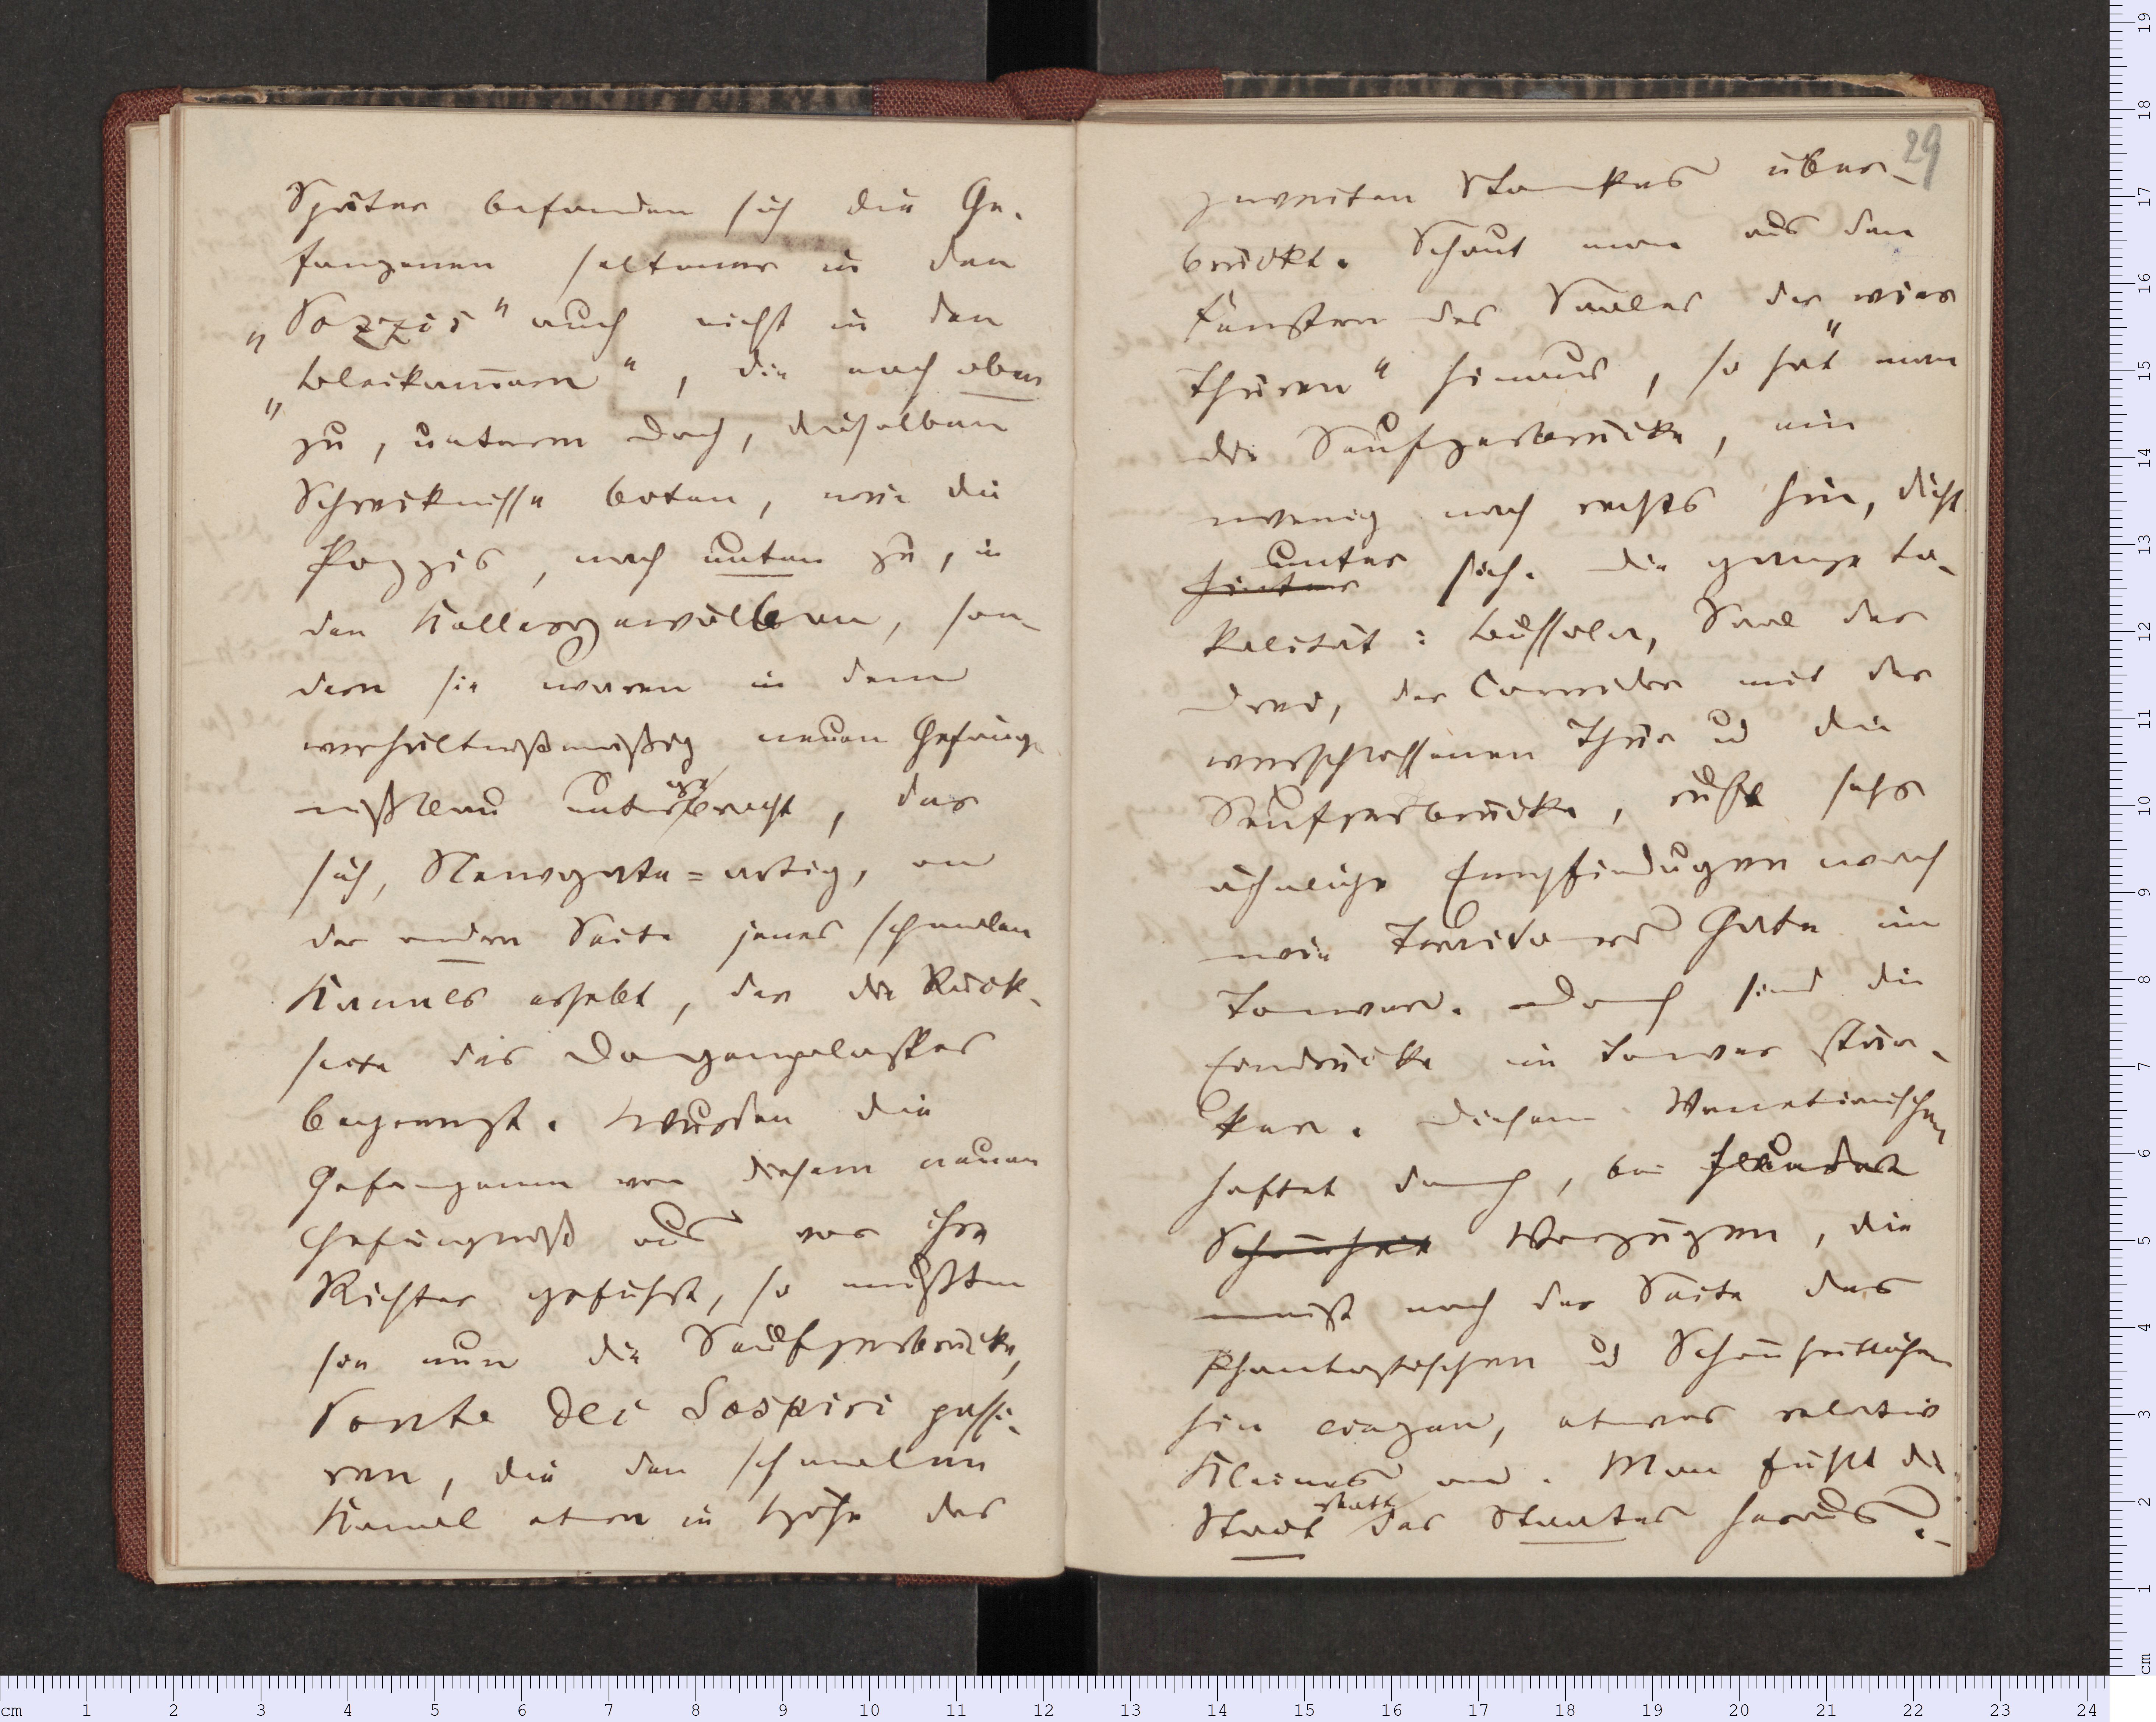 Später befanden sich die Ge-
fangenen seltener in den
„Pozzis" auch nicht in den
„Bleikammern", die nach oben
zu, unterm Dach, dieselben
Schrecknisse boten, wie die
Pozzis, nach unten zu, in
den Kellergewölben, son-
dern sie waren in dem
verhältnißmäßig neuen Gefäng-
nißbau untergebracht, das
sich, Newgate-artig, an
der andren Seite jenes schmalen
Kanals erhebt, der die Rück-
seite des Dogenpalastes
begrenzt. Wurden die
Gefangenen von diesem neuen
Gefängniß aus vor ihre
Richter geführt, so mußten
sie nun die Seufzerbrücke,
Ponte dei Sospiri passi-
ren, die den schmalen
Kanal etwa in Höhe des
29
zweiten Stockes über-
brückt. Schaut man aus den
Fenstern des Saales der „vier
Thüren" hinaus, so hat man
die Seufzerbrücke, ein
wenig nach rechts hin, dicht
hinter unter sich. Die ganze Lo-
kalität: Bussola, Saal der
Drei, der Corridor mit der
verschlossenen Thür u die
Seufzerbrücke, ruft sehr
ähnliche Empfindungen wach
wie Traitors Gate im
Tower. Doch sind die
Eindrücke im Tower stär-
ker. Diesem Venetianischen
haftet doch, bei
Schönheit Vorzügen, die
meist nach der Seite des
Phantastischen u Schönheitlichen
hin liegen, etwas relativ
Kleines an. Man fühlt die
Stadt statt des Staates heraus.